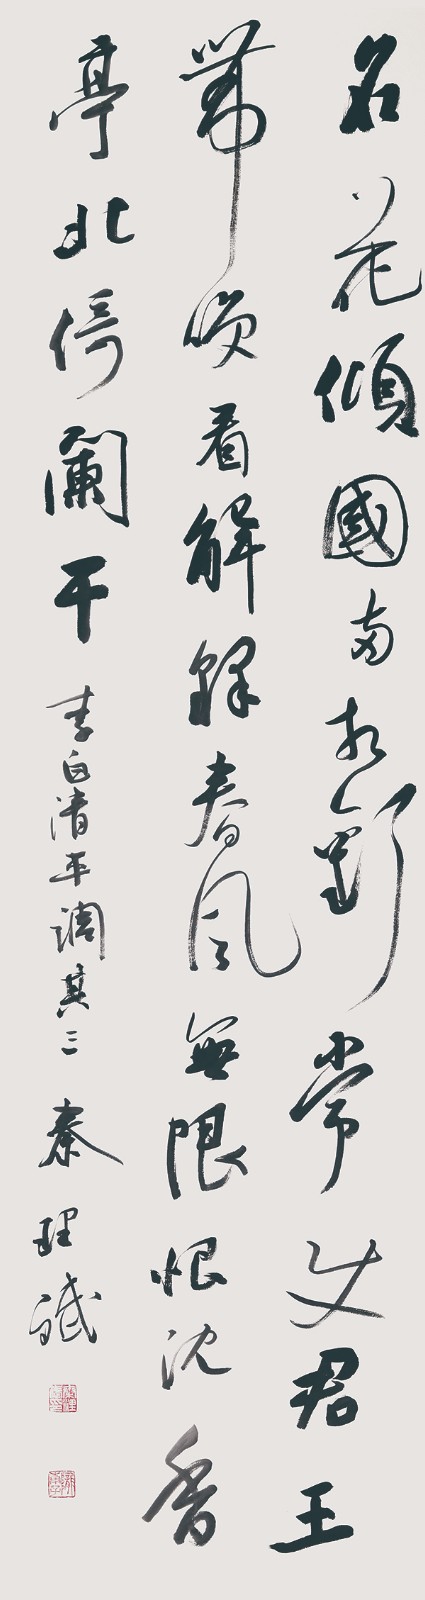 名花傾國兩相歡常使君王
帶咲看解釋春風無限恨沈香
亭北倚闌干 李白清平调其三 秦理斌